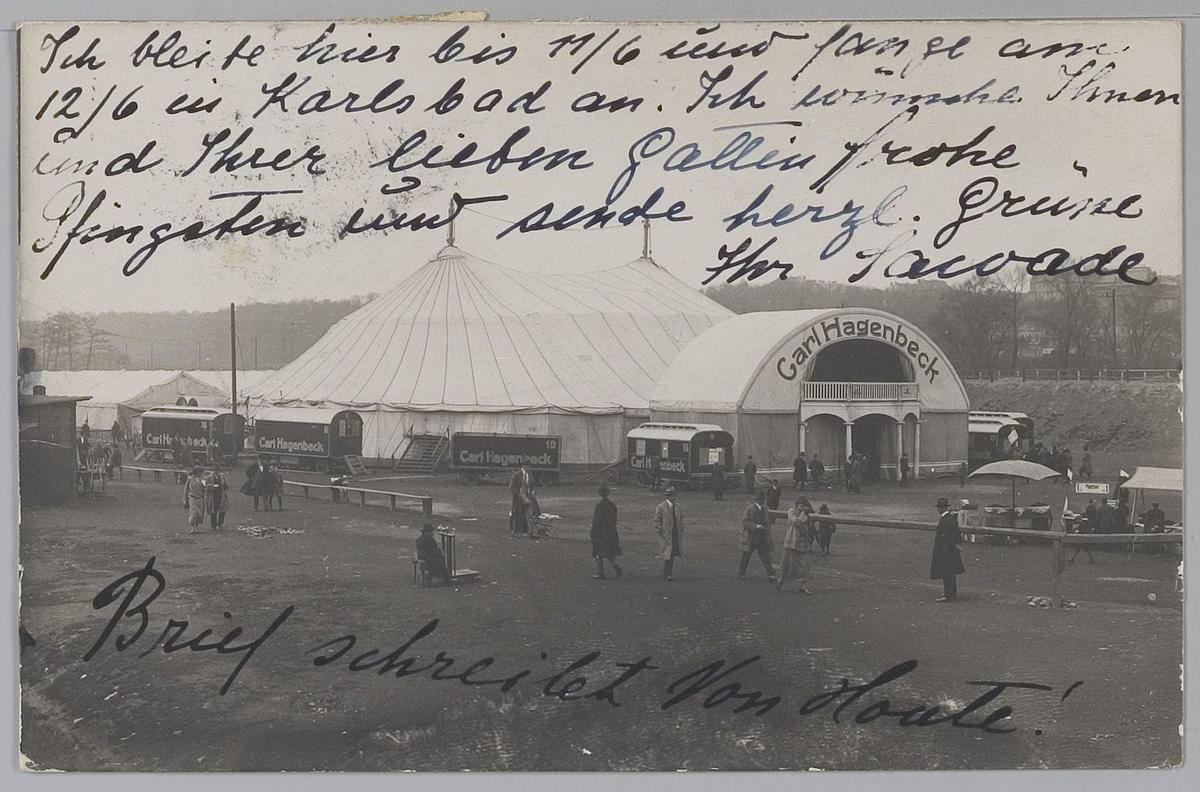 Ich bleibe hier bis 11/6 und fange am
12/6 in Karlsbad an. Ich wünsche Ihnen
und Ihrer lieben Gattin frohe
Pfingsten und sende herzl. Grüsse
Ihr Sawade
Carl Hagenbeck
Carl Hagenbeck
Carl Hagenbeck
Carl Hagenbeck 10
Carl H genbeck
Brief schreibet Von Houte!